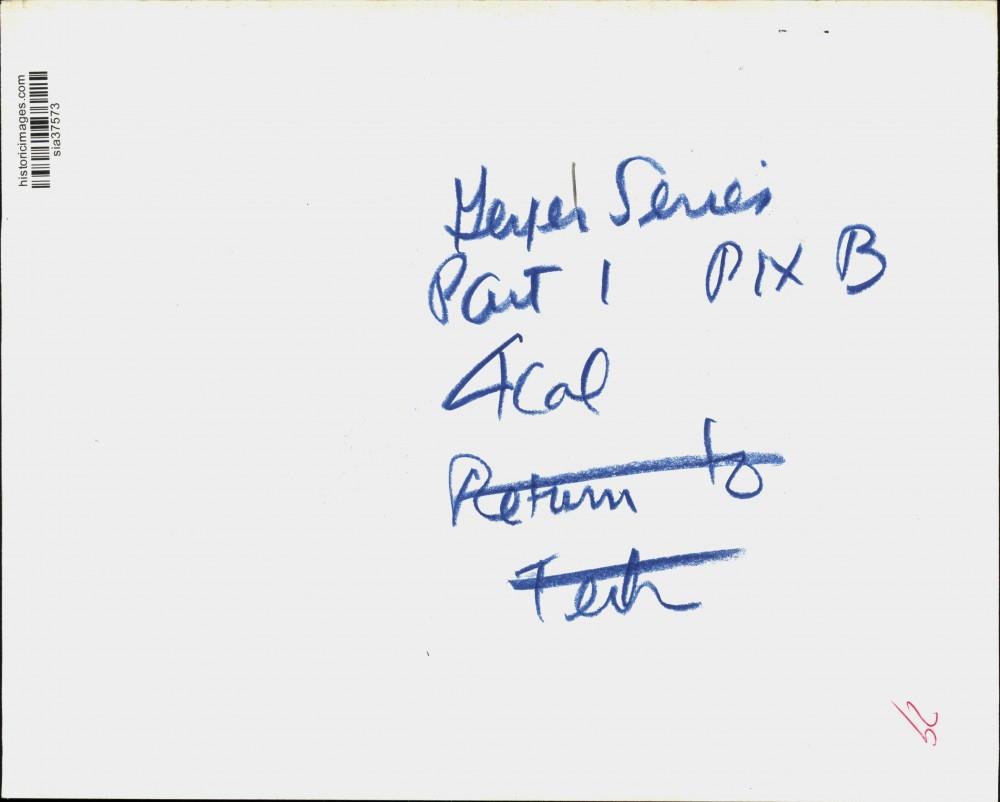 historicimages.com
sia37573
Series
Part 1 PIX B
4 Col
Return to